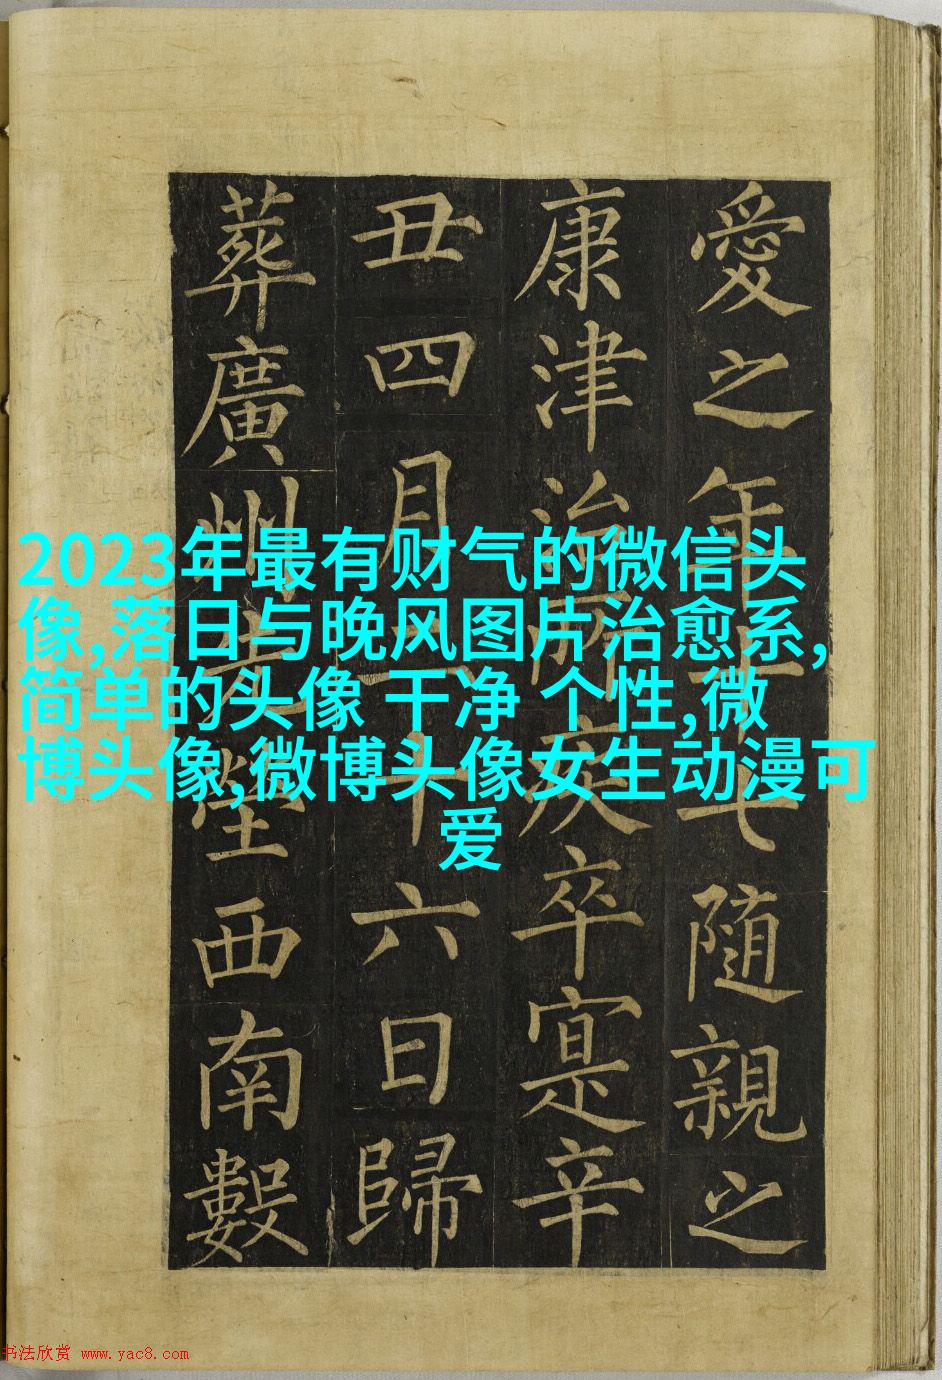 愛之年十七隨親之
康津治所疾卒寔辛
丑四月二十六日歸
葬廣州先塋西南數
2023年最有财气的微信头
像,落日与晚风图片治愈系,
简单的头像 干净 个性,微
博头像,微博头像女生动漫可
爱
书法欣赏 www.yac8.com